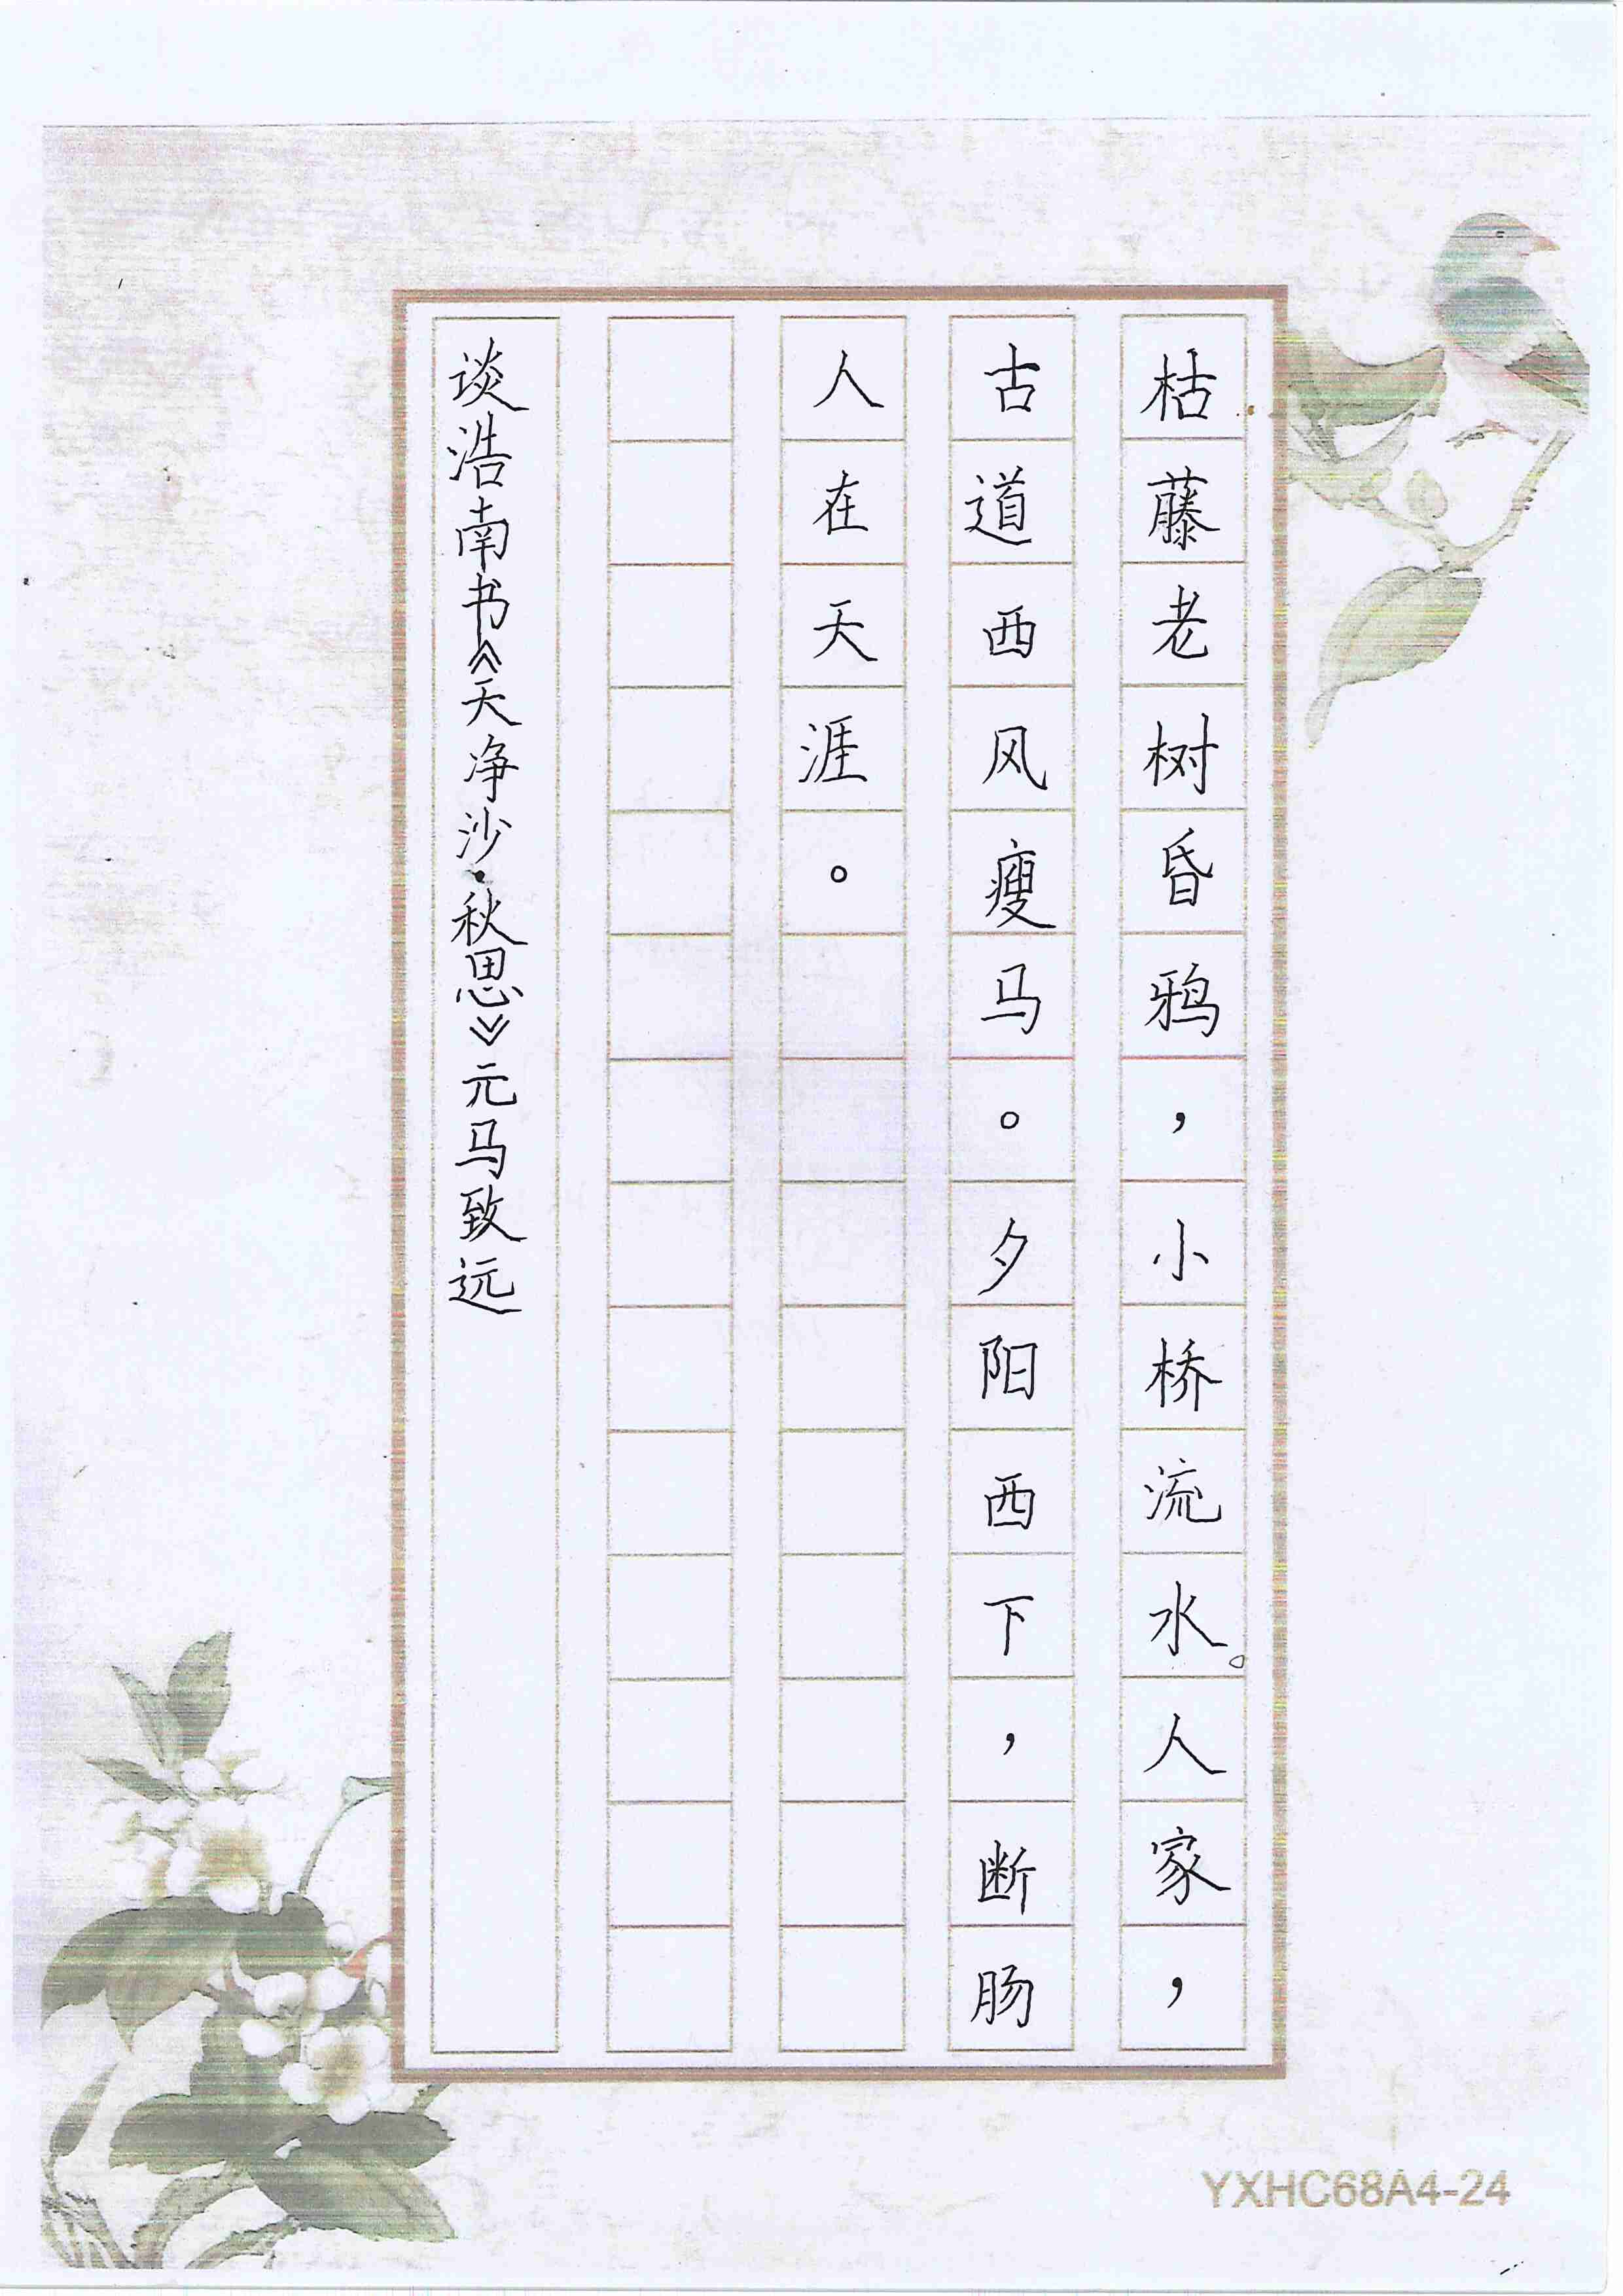 枯藤老树昏鸦，小桥流水。人家，
古道西风瘦马。夕阳西下，断肠
人在天涯。
谈浩南书《天净沙·秋思》元马致远
YXHC68A4-24